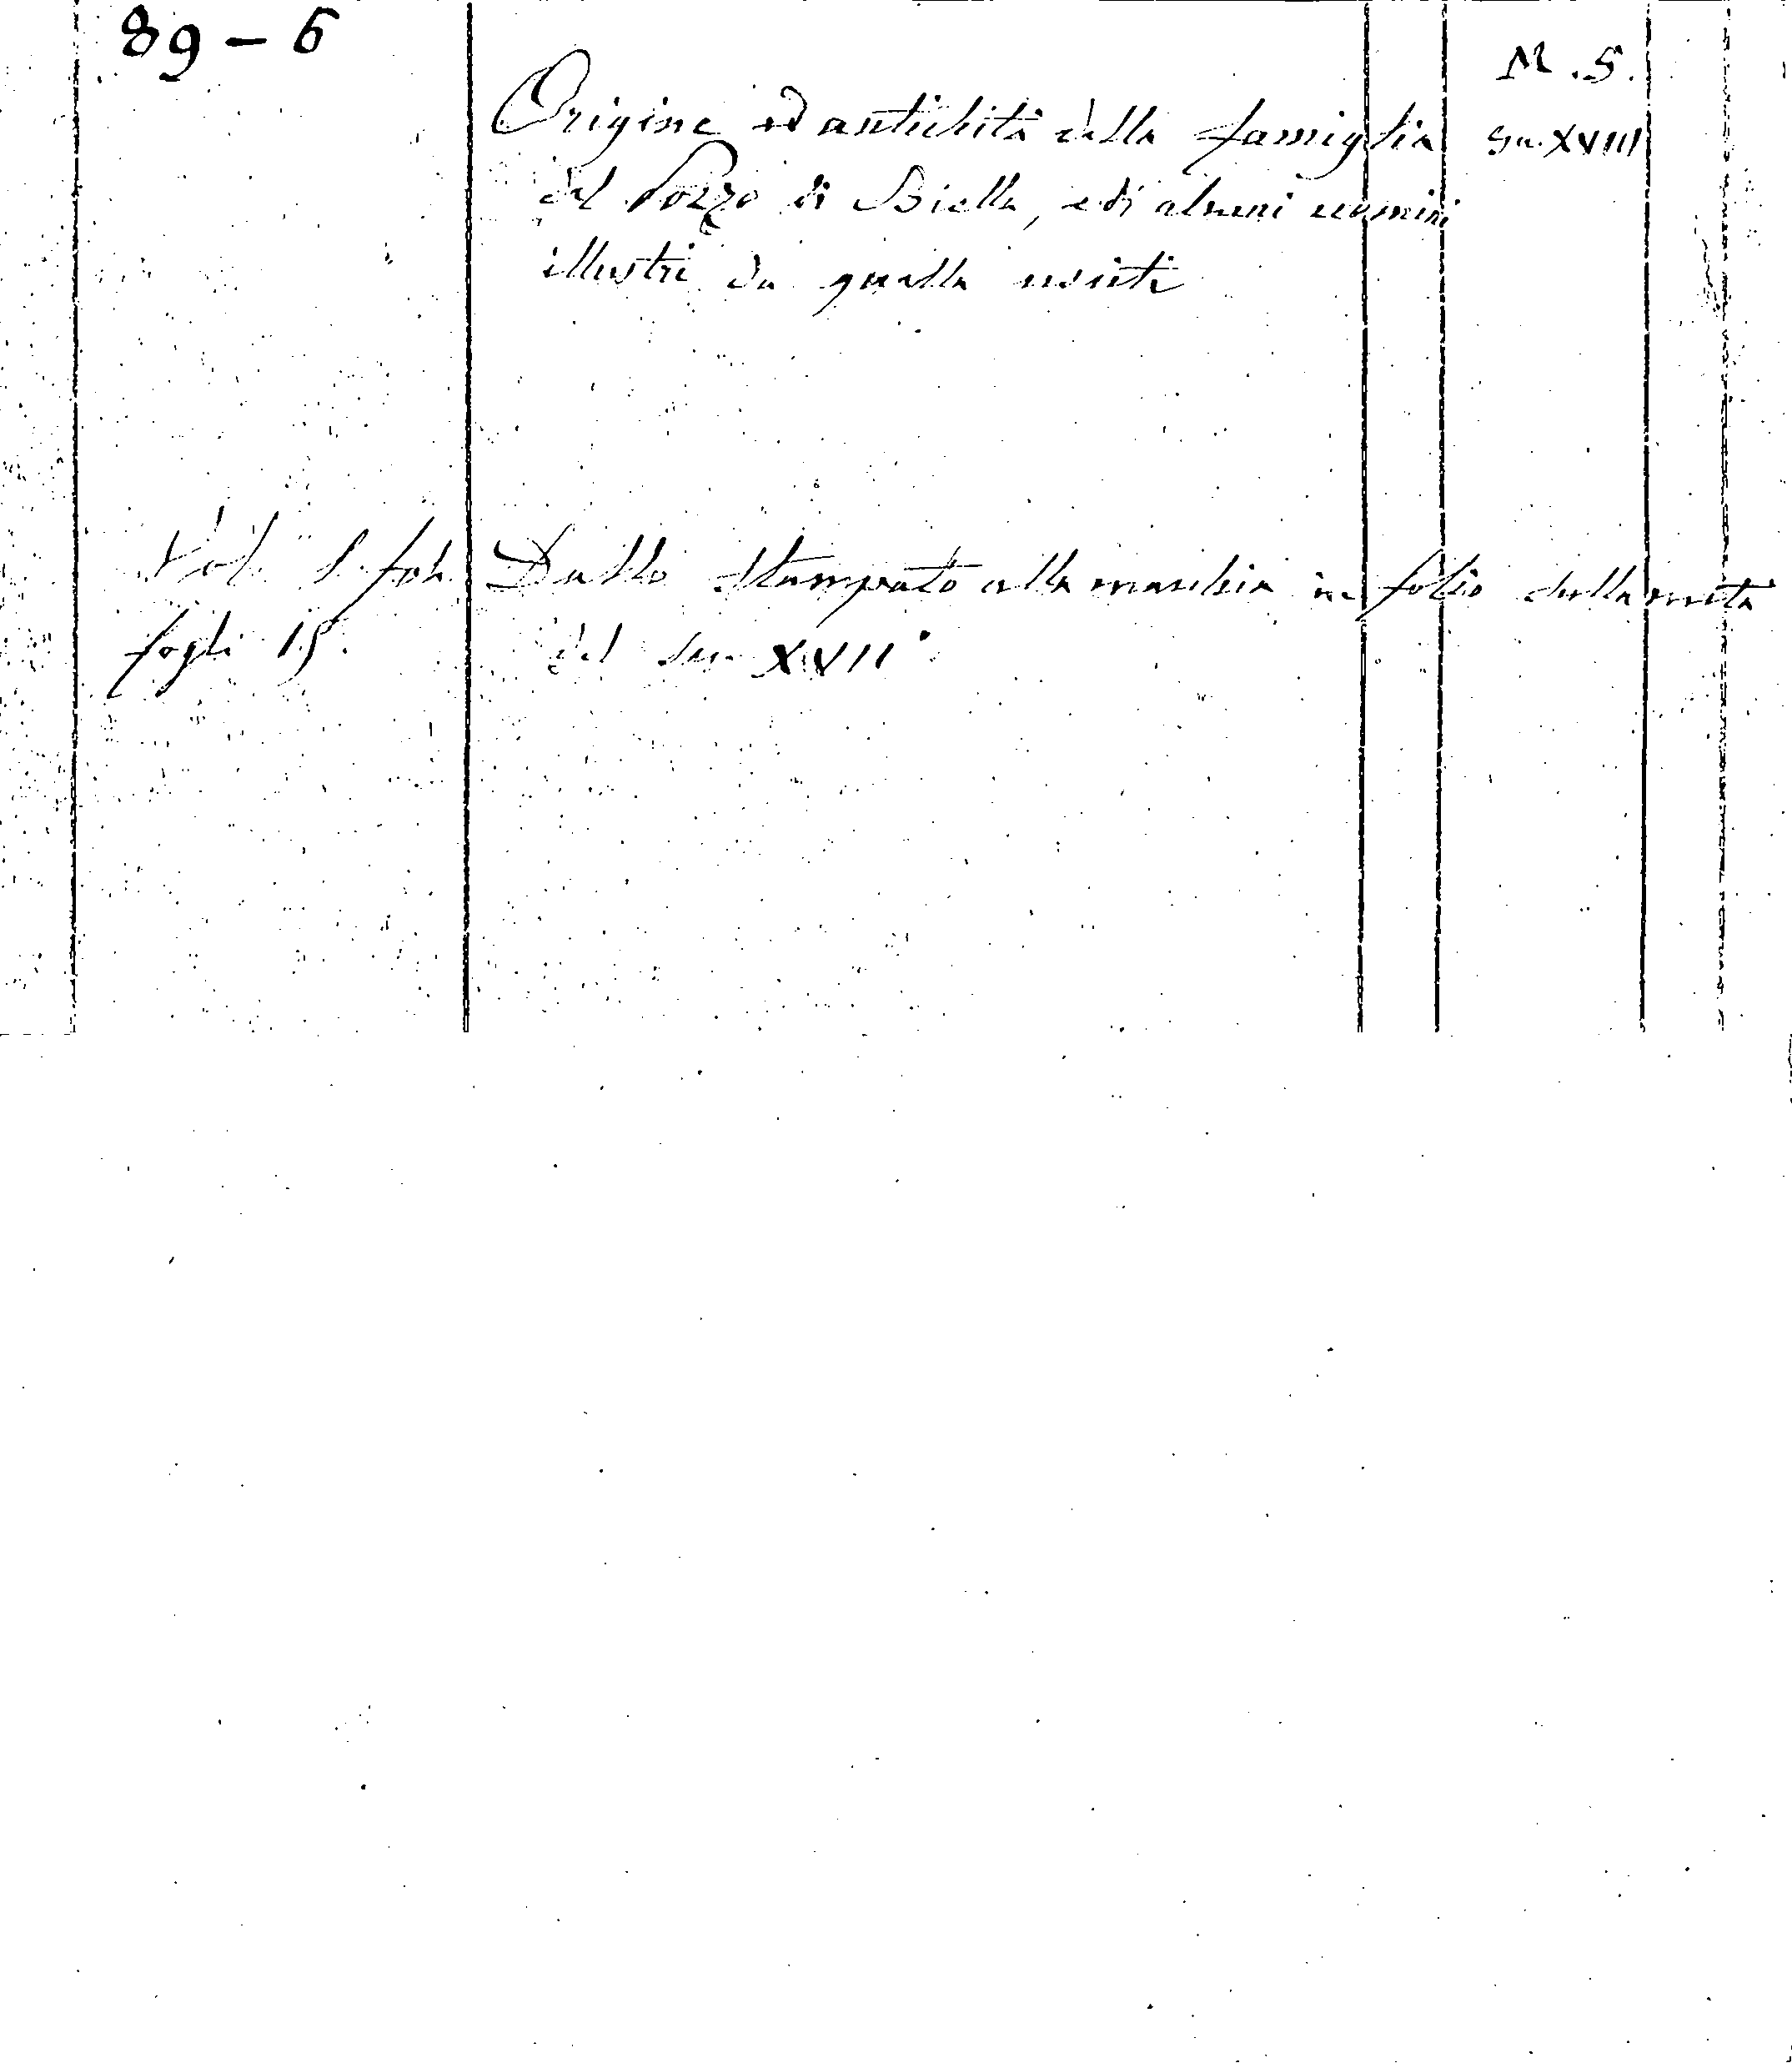 89 - 6
M. S.
Origine ed antichità della famiglia Sec. XVIII
del Pozzo di Biella, e di alcuni uomini
illustri da quella usciti
Vol. 1. fol. Dallo stampato alla macchia in folio della metà
fogli 15. del sec. XVII°